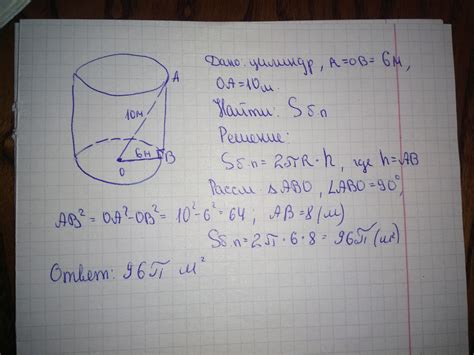 Дано: цилиндр, R=OB=6м,
OA=10м.
Найти: Sб.п
Решение:
Sб.п=2πR·h, где h=AB
Рассм ΔABO, ∠ABO=90°,
AB²=OA²-OB²=10²-6²=64; AB=8(м)
Sб.п=2π·6·8=96π(м²)
Ответ: 96π м²
A
10м
6м
B
O